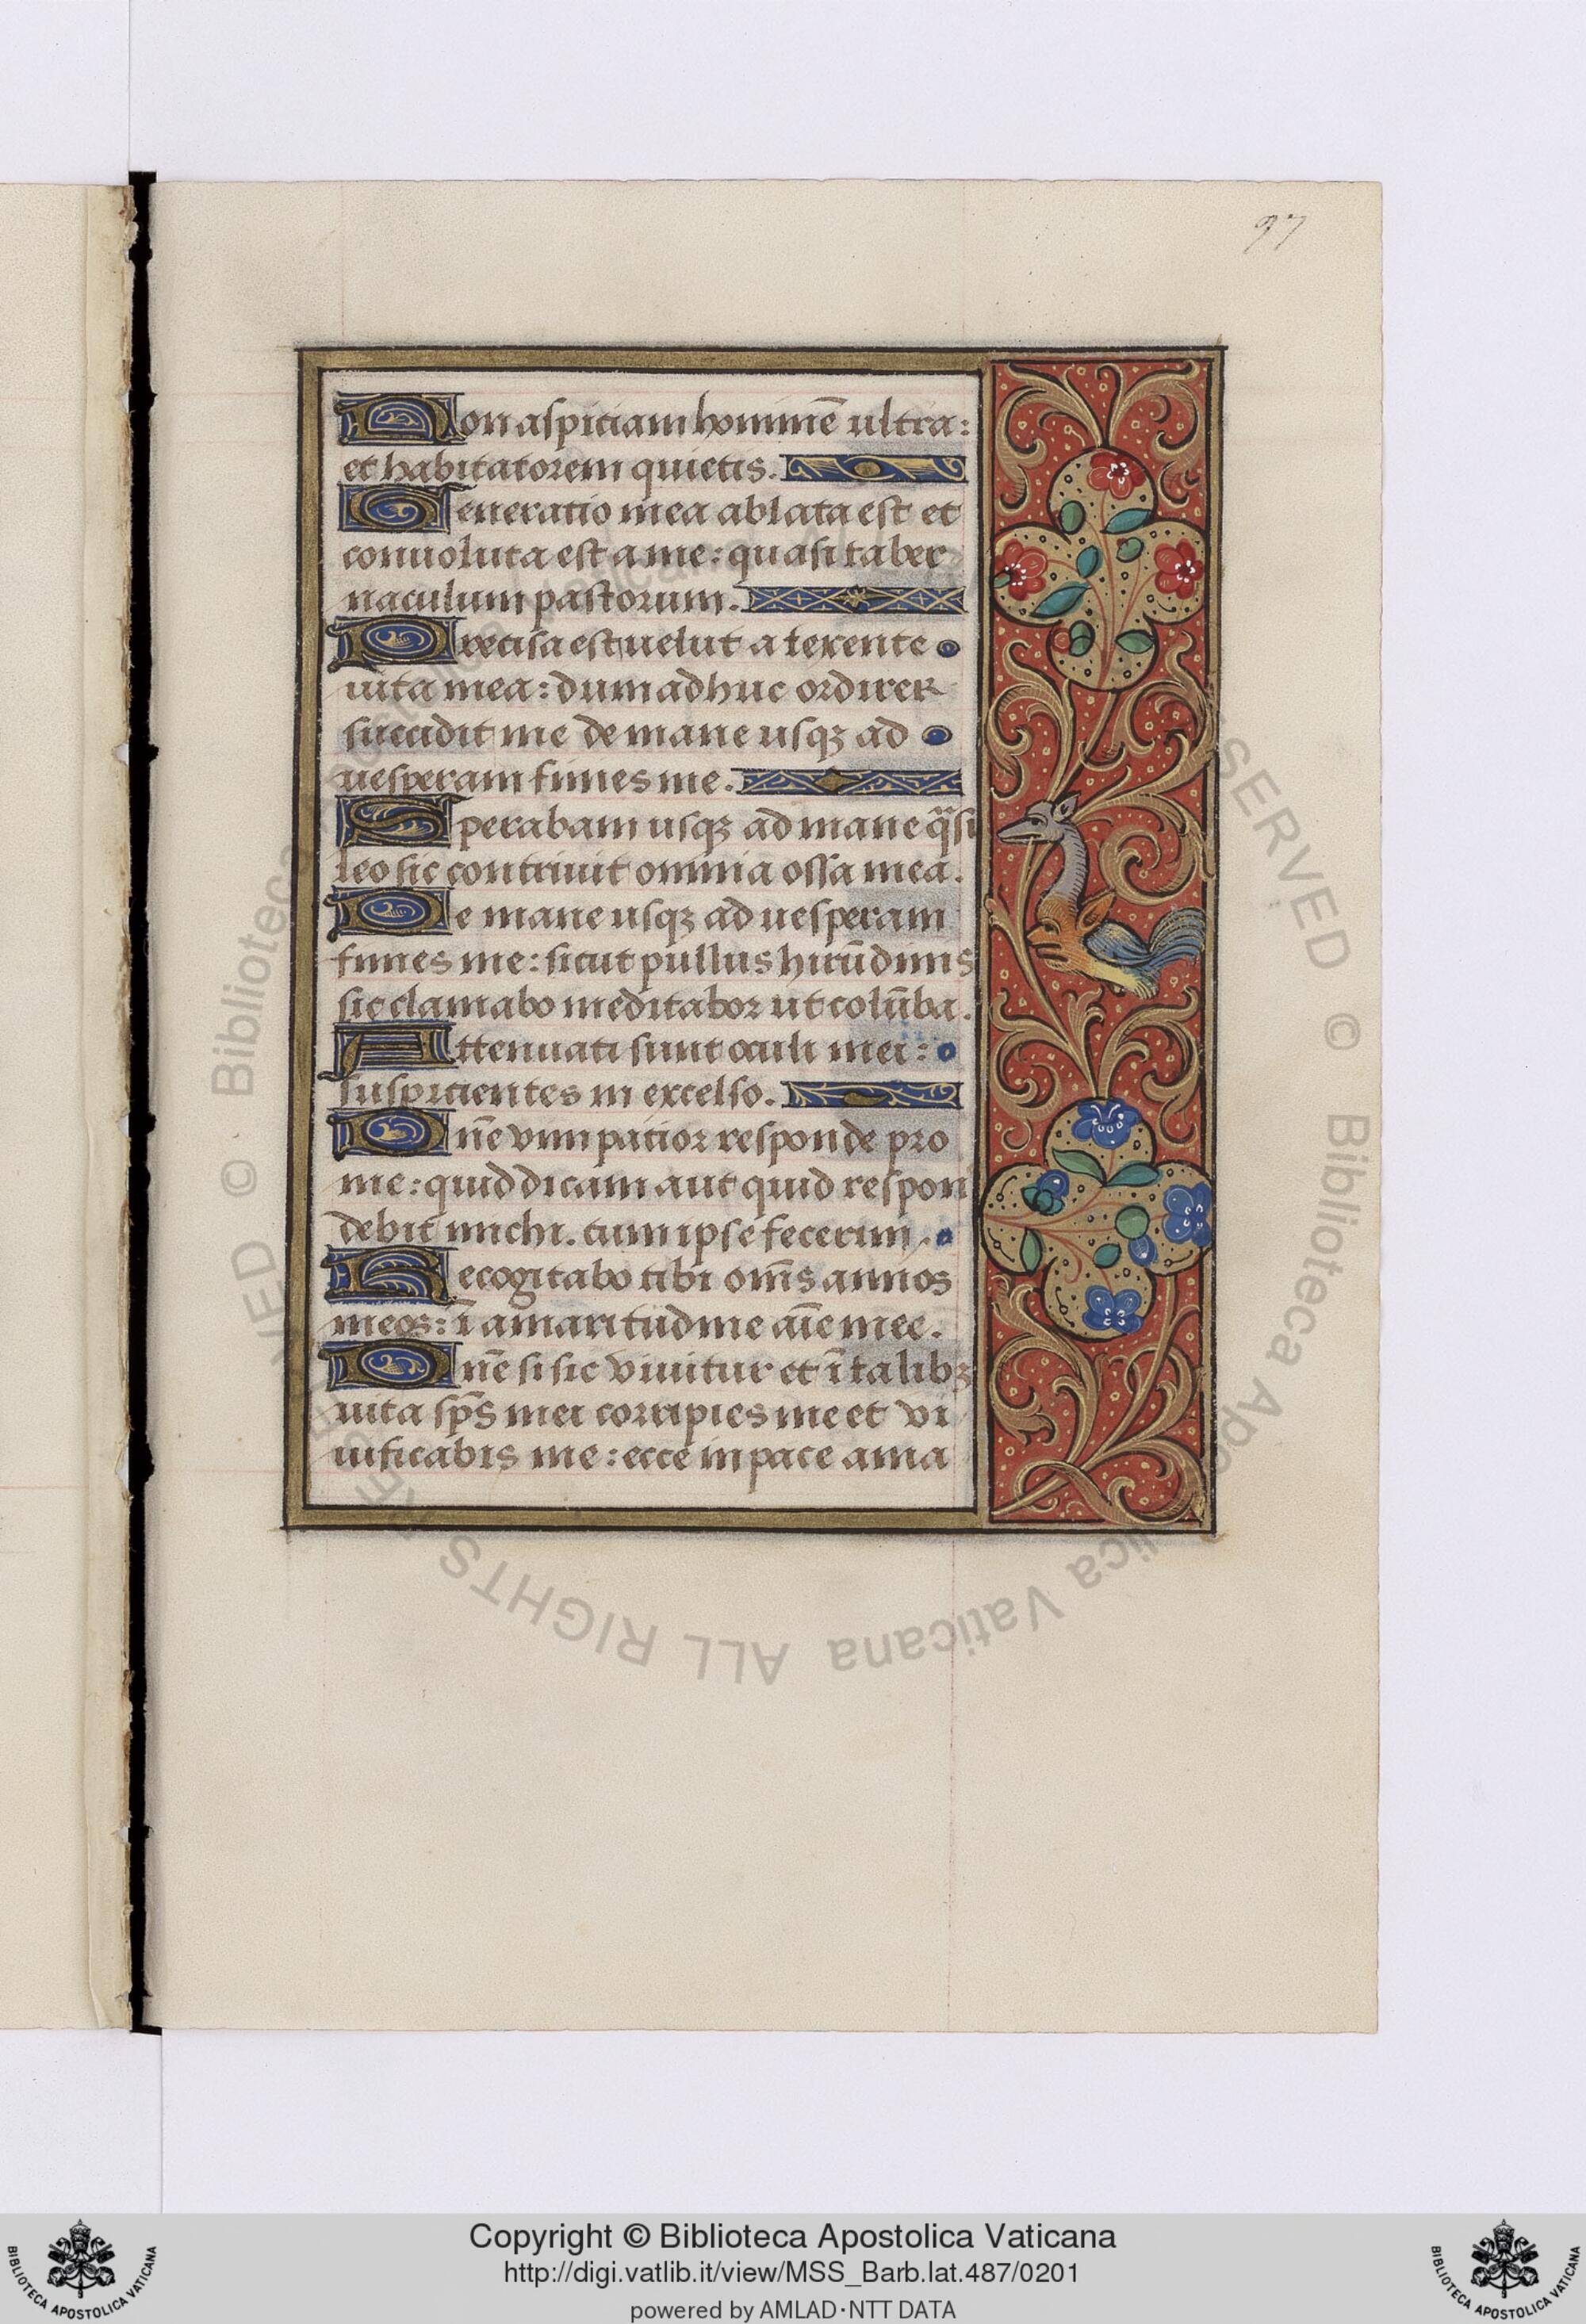 97
Non aspiciam hominē ultra:
et habitatorem quietis.
Generatio mea ablata est et
conuoluta est a me: quasi taber
naculum pastorum.
Precisa est uelut a texente
uita mea: dum adhuc ordirer
succidit me de mane usqꝫ ad
uesperam finies me.
Sperabam usqꝫ ad mane q̄si
leo sic contriuit omnia ossa mea.
De mane usqꝫ ad uesperam
finies me: sicut pullus hirūdinis
sic clamabo meditabor ut colūba.
Attenuati sunt oculi mei:
suspicientes in excelso.
Dn̄e vim patior responde pro
me: quid dicam aut quid respon
debit michi. cum ipse fecerim.
Recogitabo tibi om̄s annos
meos: ī amaritudine aīe mee.
Dn̄e si sic viuitur et ī talibꝫ
uita sp̄s mei corripies me et vi
uificabis me: ecce in pace ama
© Biblioteca Apostolica Vaticana ALL RIGHTS RESERVED
Copyright © Biblioteca Apostolica Vaticana
http://digi.vatlib.it/view/MSS_Barb.lat.487/0201
powered by AMLAD·NTT DATA
BIBLIOTECA APOSTOLICA VATICANA
BIBLIOTECA APOSTOLICA VATICANA